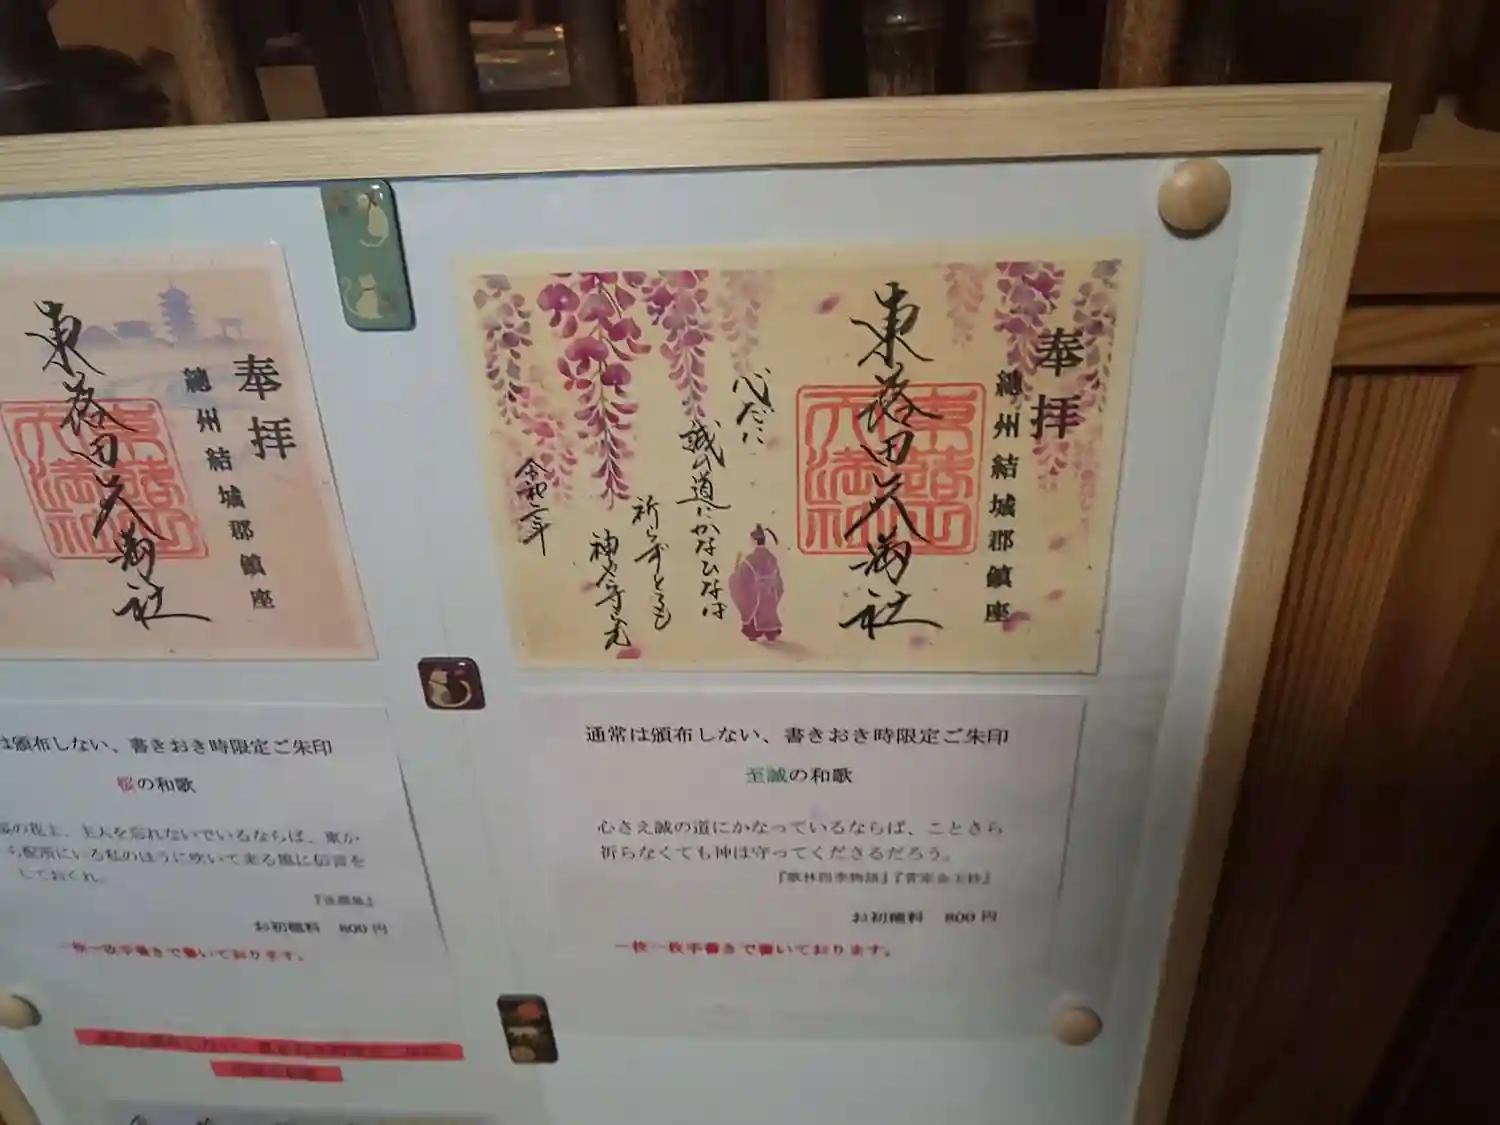 奉拝
總州結城郡鎮座
東蕗田天満社
奉拝
總州結城郡鎮座
東蕗田天満社
心だに
誠の道にかなひなば
祈らずとても
神や守らむ
令和二年
は頒布しない、書きおき時限定ご朱印
桜の和歌
主人を忘れないでいるならば、東か
ら配所にいる私のほうに吹いて来る風に伝言を
しておくれ。
お初穂料 800円
一枚一枚手書きで書いております。
通常は頒布しない、書きおき時限定ご朱印
至誠の和歌
心さえ誠の道にかなっているならば、ことさら
祈らなくても神は守ってくださるだろう。
『歌林四季物語』『菅家金玉抄』
お初穂料 800円
一枚一枚手書きで書いております。